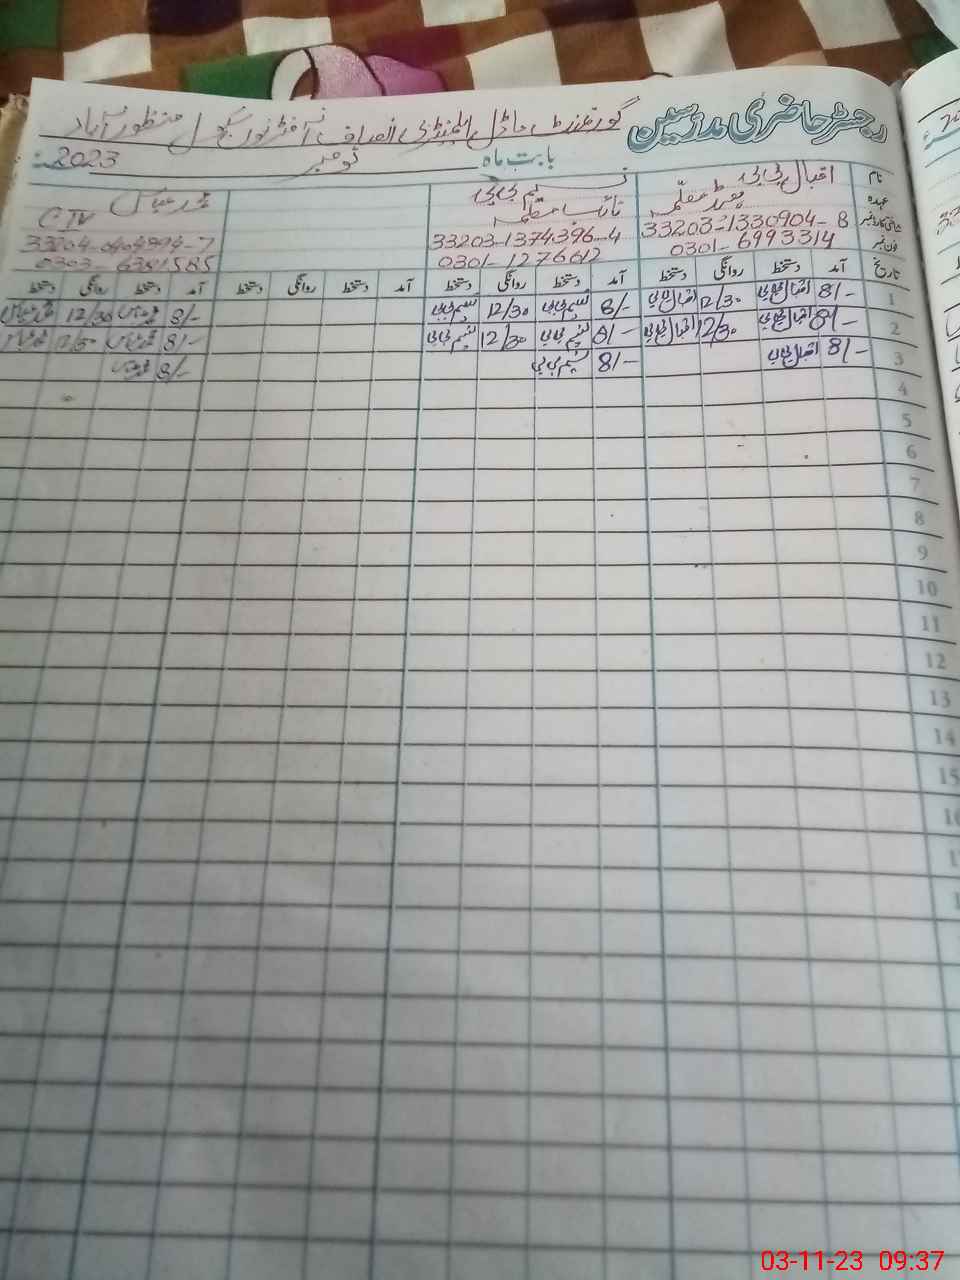 رجسٹر حاضری مدرسین گورنمنٹ ماڈل ایلیمنٹری انصاف آفٹر نون سکول منظور آباد
بابت ماہ نومبر 2023ء
نام اقبال بی بی نسیم بی بی
عہدہ ہیڈ معلمہ نائب معلمہ CTV
شناختی کارڈ نمبر 33203-1330904-8 33203-1374396-4
فون نمبر 0301-6993314 0301-1276612
تاریخ آمد دستخط روانگی دستخط آمد دستخط روانگی دستخط آمد دستخط روانگی دستخط آمد دستخط روانگی دستخط
1 8/- اقبال بی بی 12/30 اقبال بی بی 8/- نسیم بی بی 12/30 نسیم بی بی 8/- 12/30
2 8/- اقبال بی بی 12/30 اقبال بی بی 8/- نسیم بی بی 12/30 نسیم بی بی 8/- 12/30
3 8/- اقبال بی بی 8/- نسیم بی بی 8/-
4
5
6
7
8
9
10
11
12
13
14
15
03-11-23 09:37